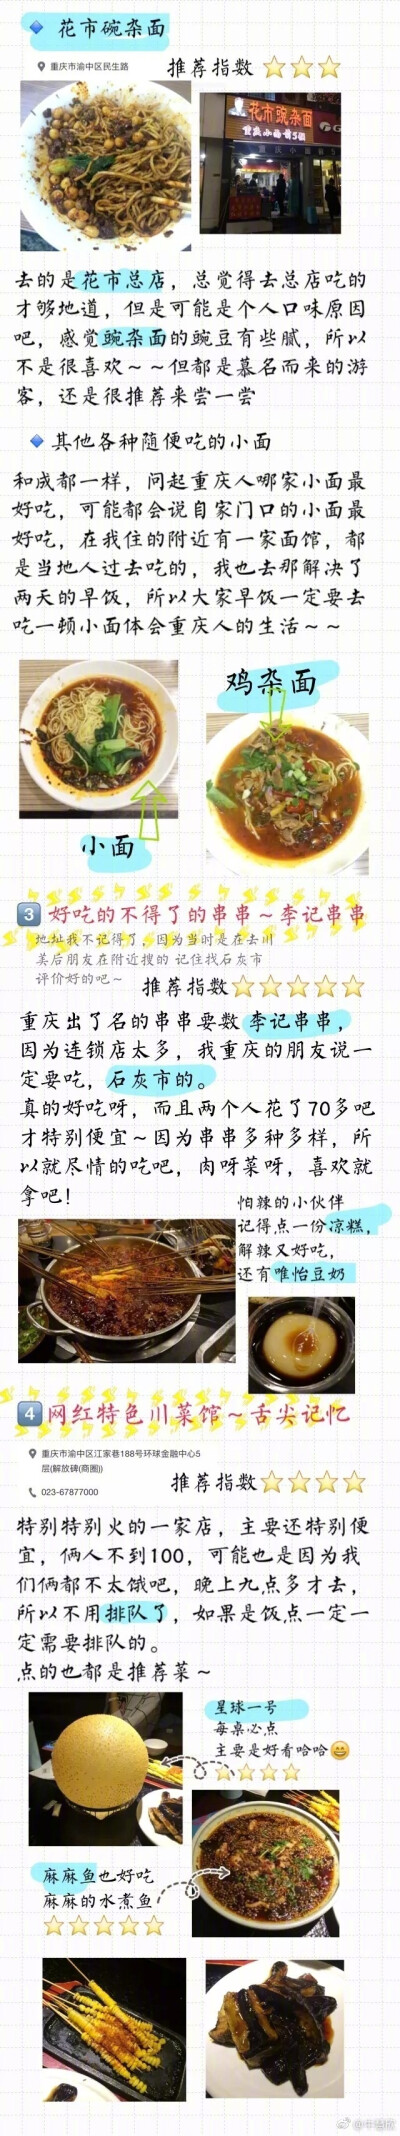 花市碗杂面
重庆市渝中区民生路
推荐指数
花市豌杂面
去的是花市总店，总觉得去总店吃的
才够地道，但是可能是个人口味原因
吧，感觉豌杂面的豌豆有些腻，所以
不是很喜欢～～但都是慕名而来的游
客，还是很推荐来尝一尝
其他各种随便吃的小面
和成都一样，问起重庆人哪家小面最
好吃，可能都会说自家门口的小面最
好吃，在我住的附近有一家面馆，都
是当地人过去吃的，我也去那解决了
两天的早饭，所以大家早饭一定要去
吃一顿小面体会重庆人的生活～～
鸡杂面
小面
3 好吃的不得了的串串～李记串串
地址我不记得了，因为当时是在去川
美后朋友在附近搜的 记住找石灰市
评价好的吧～
推荐指数
重庆出了名的串串要数李记串串，
因为连锁店太多，我重庆的朋友说一
定要吃，石灰市的。
真的好吃呀，而且两个人花了70多吧
才特别便宜～因为串串多种多样，所
以就尽情的吃吧，肉呀菜呀，喜欢就
拿吧！
怕辣的小伙伴
记得点一份凉糕，
解辣又好吃，
还有唯怡豆奶
4 网红特色川菜馆～舌尖记忆
重庆市渝中区江家巷188号环球金融中心5
层(解放碑(商圈))
023-67877000
推荐指数
特别特别火的一家店，主要还特别便
宜，俩人不到100，可能也是因为我
们俩都不太饿吧，晚上九点多才去，
所以不用排队了，如果是饭点一定一
定需要排队的。
点的也都是推荐菜～
星球一号
每桌必点
主要是好看哈哈😄
麻麻鱼也好吃
麻麻的水煮鱼